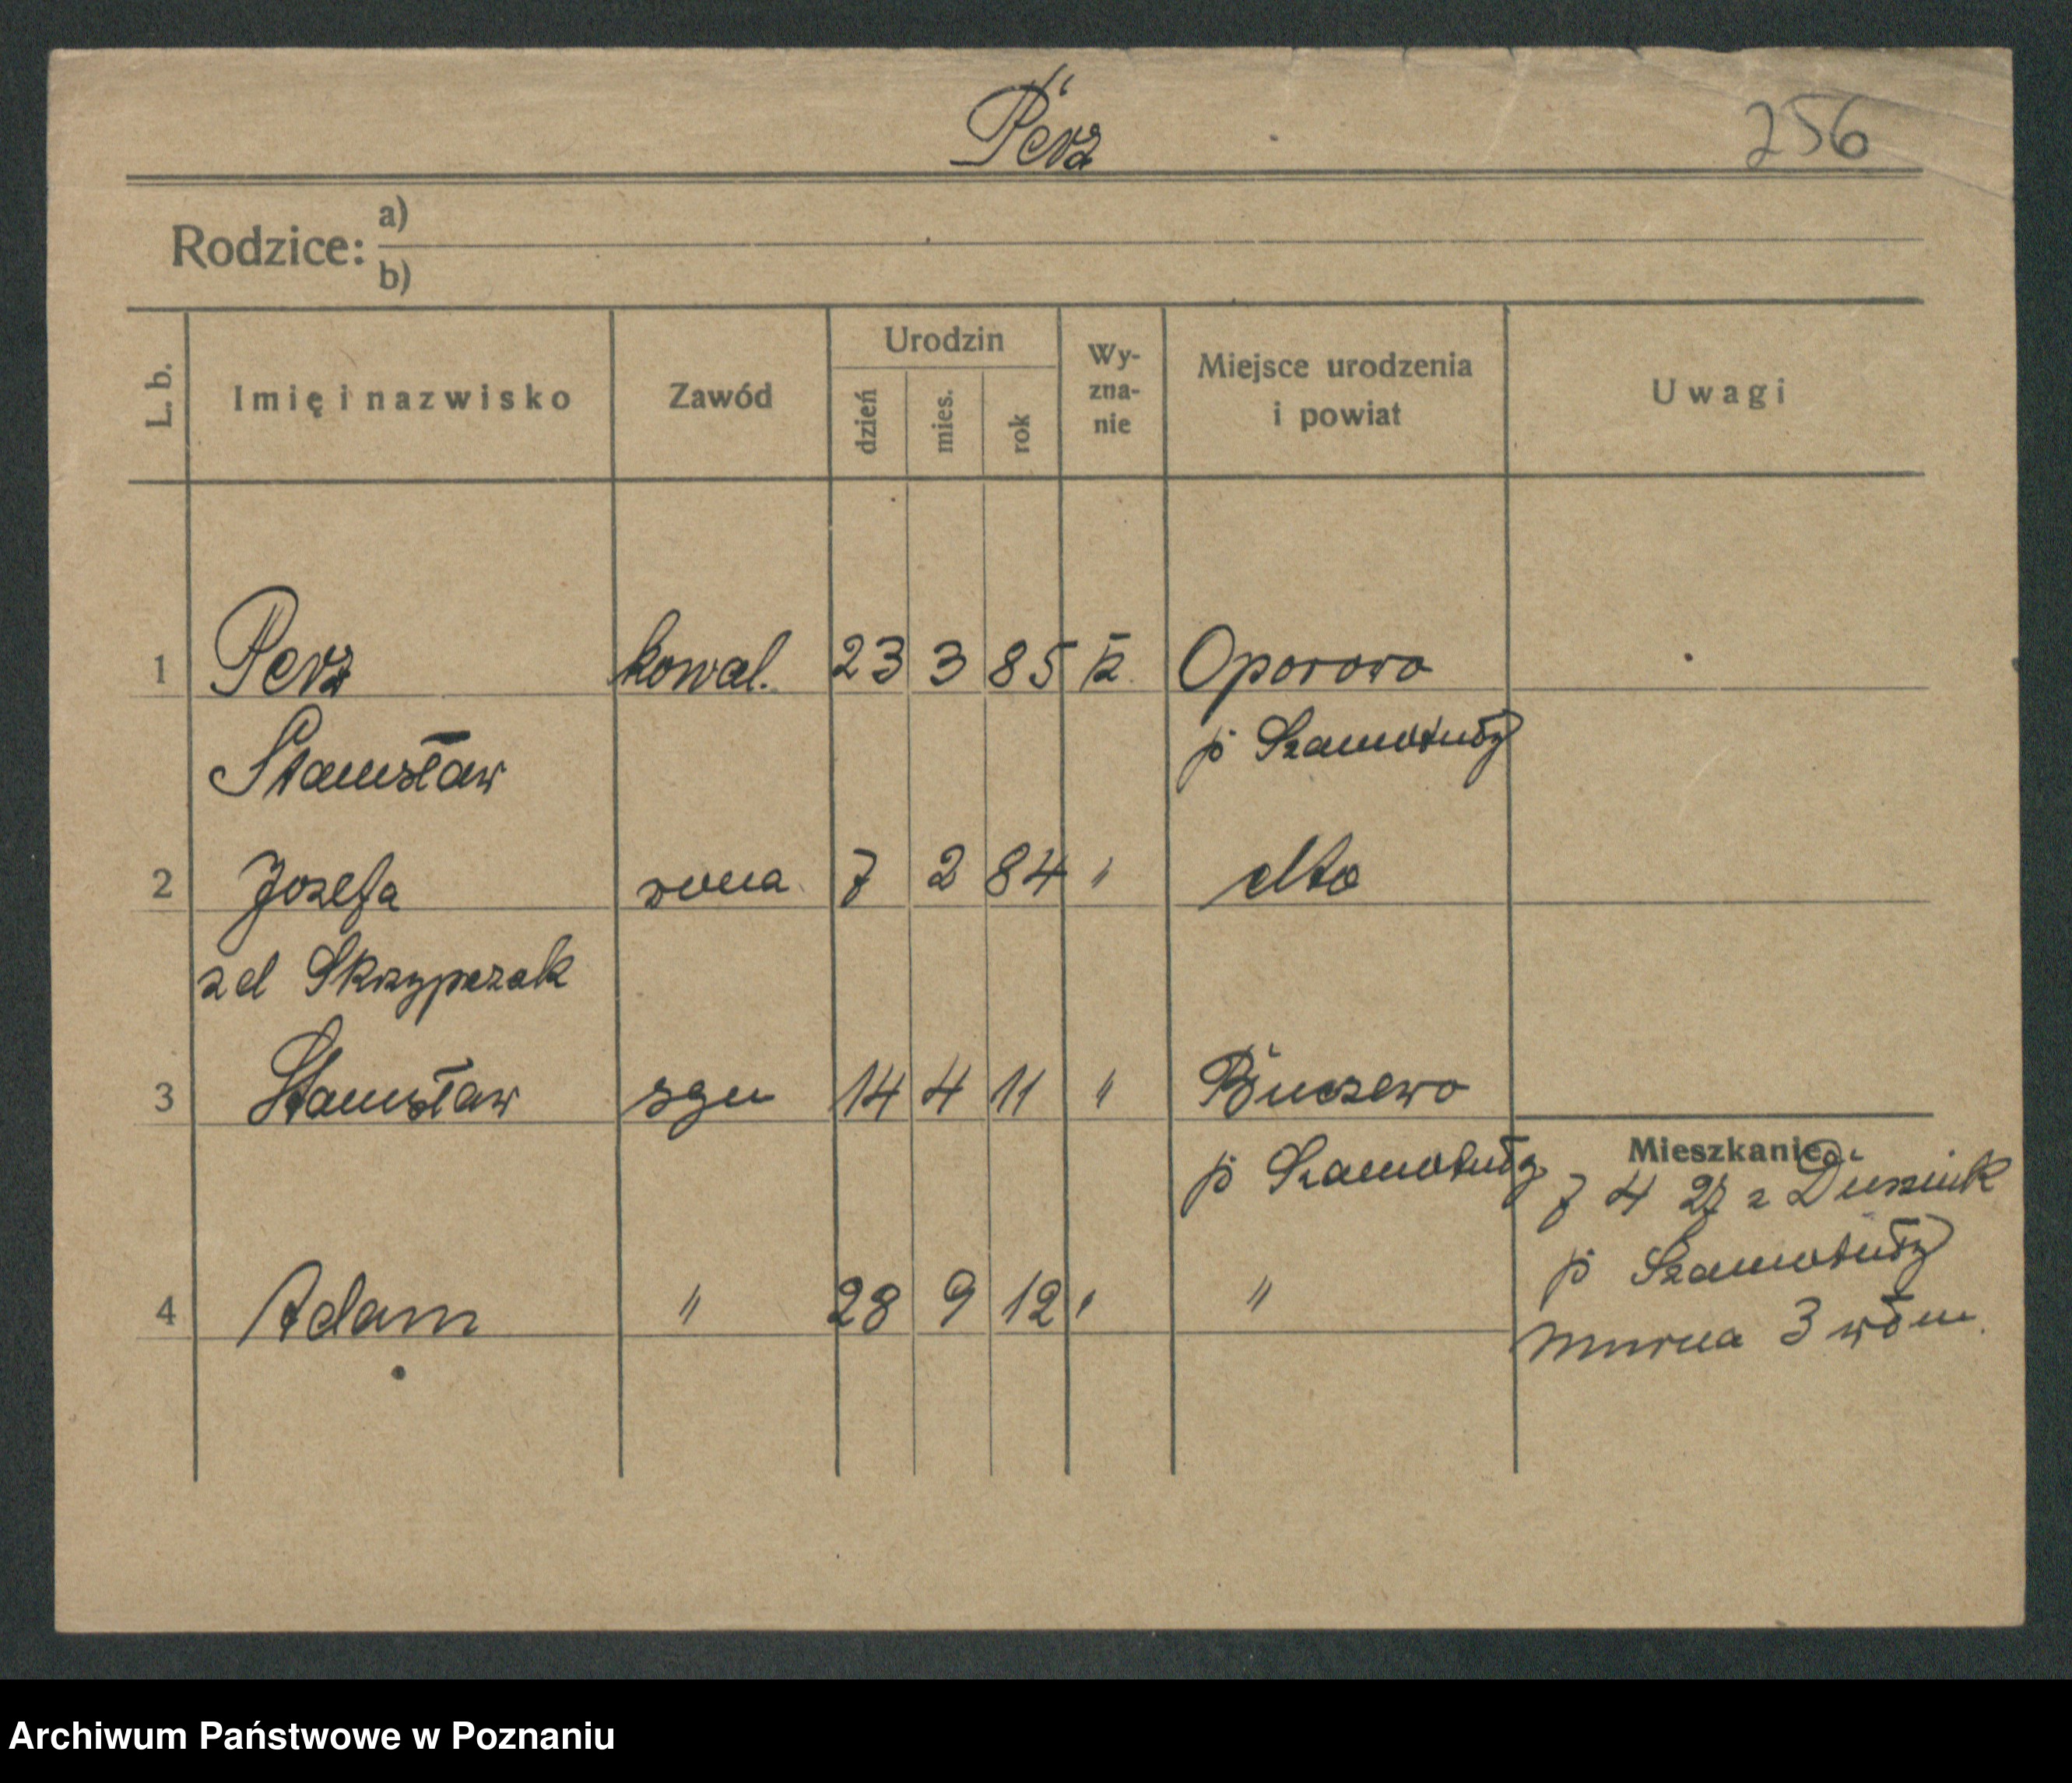 Perz
256
Rodzice: a)
b)
L. b. Imię i nazwisko Zawód Urodzin dzień mies. rok Wy-zna-nie Miejsce urodzenia i powiat Uwagi
1 Perz kowal. 23 3 85 k. Oporowo
Stanisław p Szamotuły
2 Jozefa zona 7 2 84 " dto
zd Skrzypczak
3 Stanisław syn 14 4 11 " Buszewo
p Szamotuły
4 Adam " 28 9 12 " "
Mieszkanie
7 4 27 z Dusznik
p Szamotuły
Murna 3
Archiwum Państwowe w Poznaniu